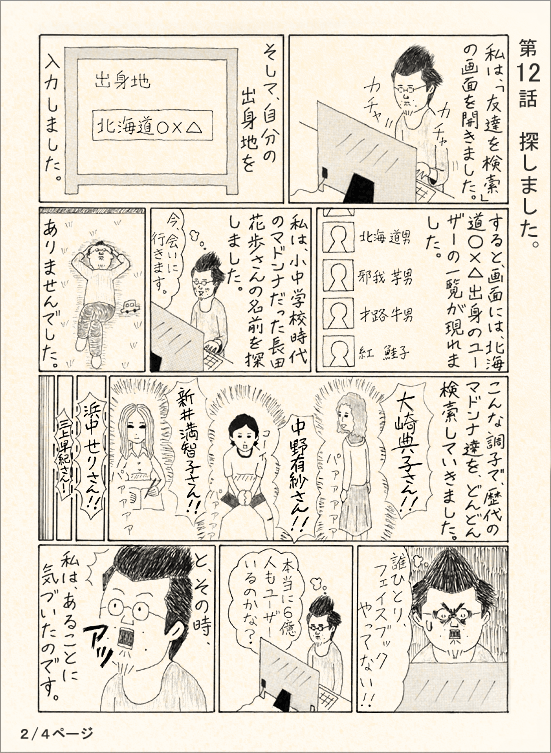 第12話 探しました。
私は、「友達を検索」
の画面を開きました。
カチャ
カチャッ
そして、自分の
出身地を
出身地
北海道○×△
入力しました。
すると、画面には、北海
道○×△出身のユー
ザーの一覧が現れま
した。
北海道男
邪我 芋男
才路 牛男
紅 鮭子
私は、小中学校時代
のマドンナだった長田
花歩さんの名前を探
しました。
今、会いに
行きます。
ありませんでした。
こんな調子で歴代の
マドンナ達を、どんどん
検索していきました。
大崎典子さん!!
中野有紗さん!!
新井満智子さん!!
パァァァァ
浜中せりさん!!
三上早紀さん!
誰ひとり、
フェイスブック
やってない!!
本当に6億
人もユーザー
いるのかな?
と、その時、
アッ
私は、あることに
気づいたのです。
2/4ページ